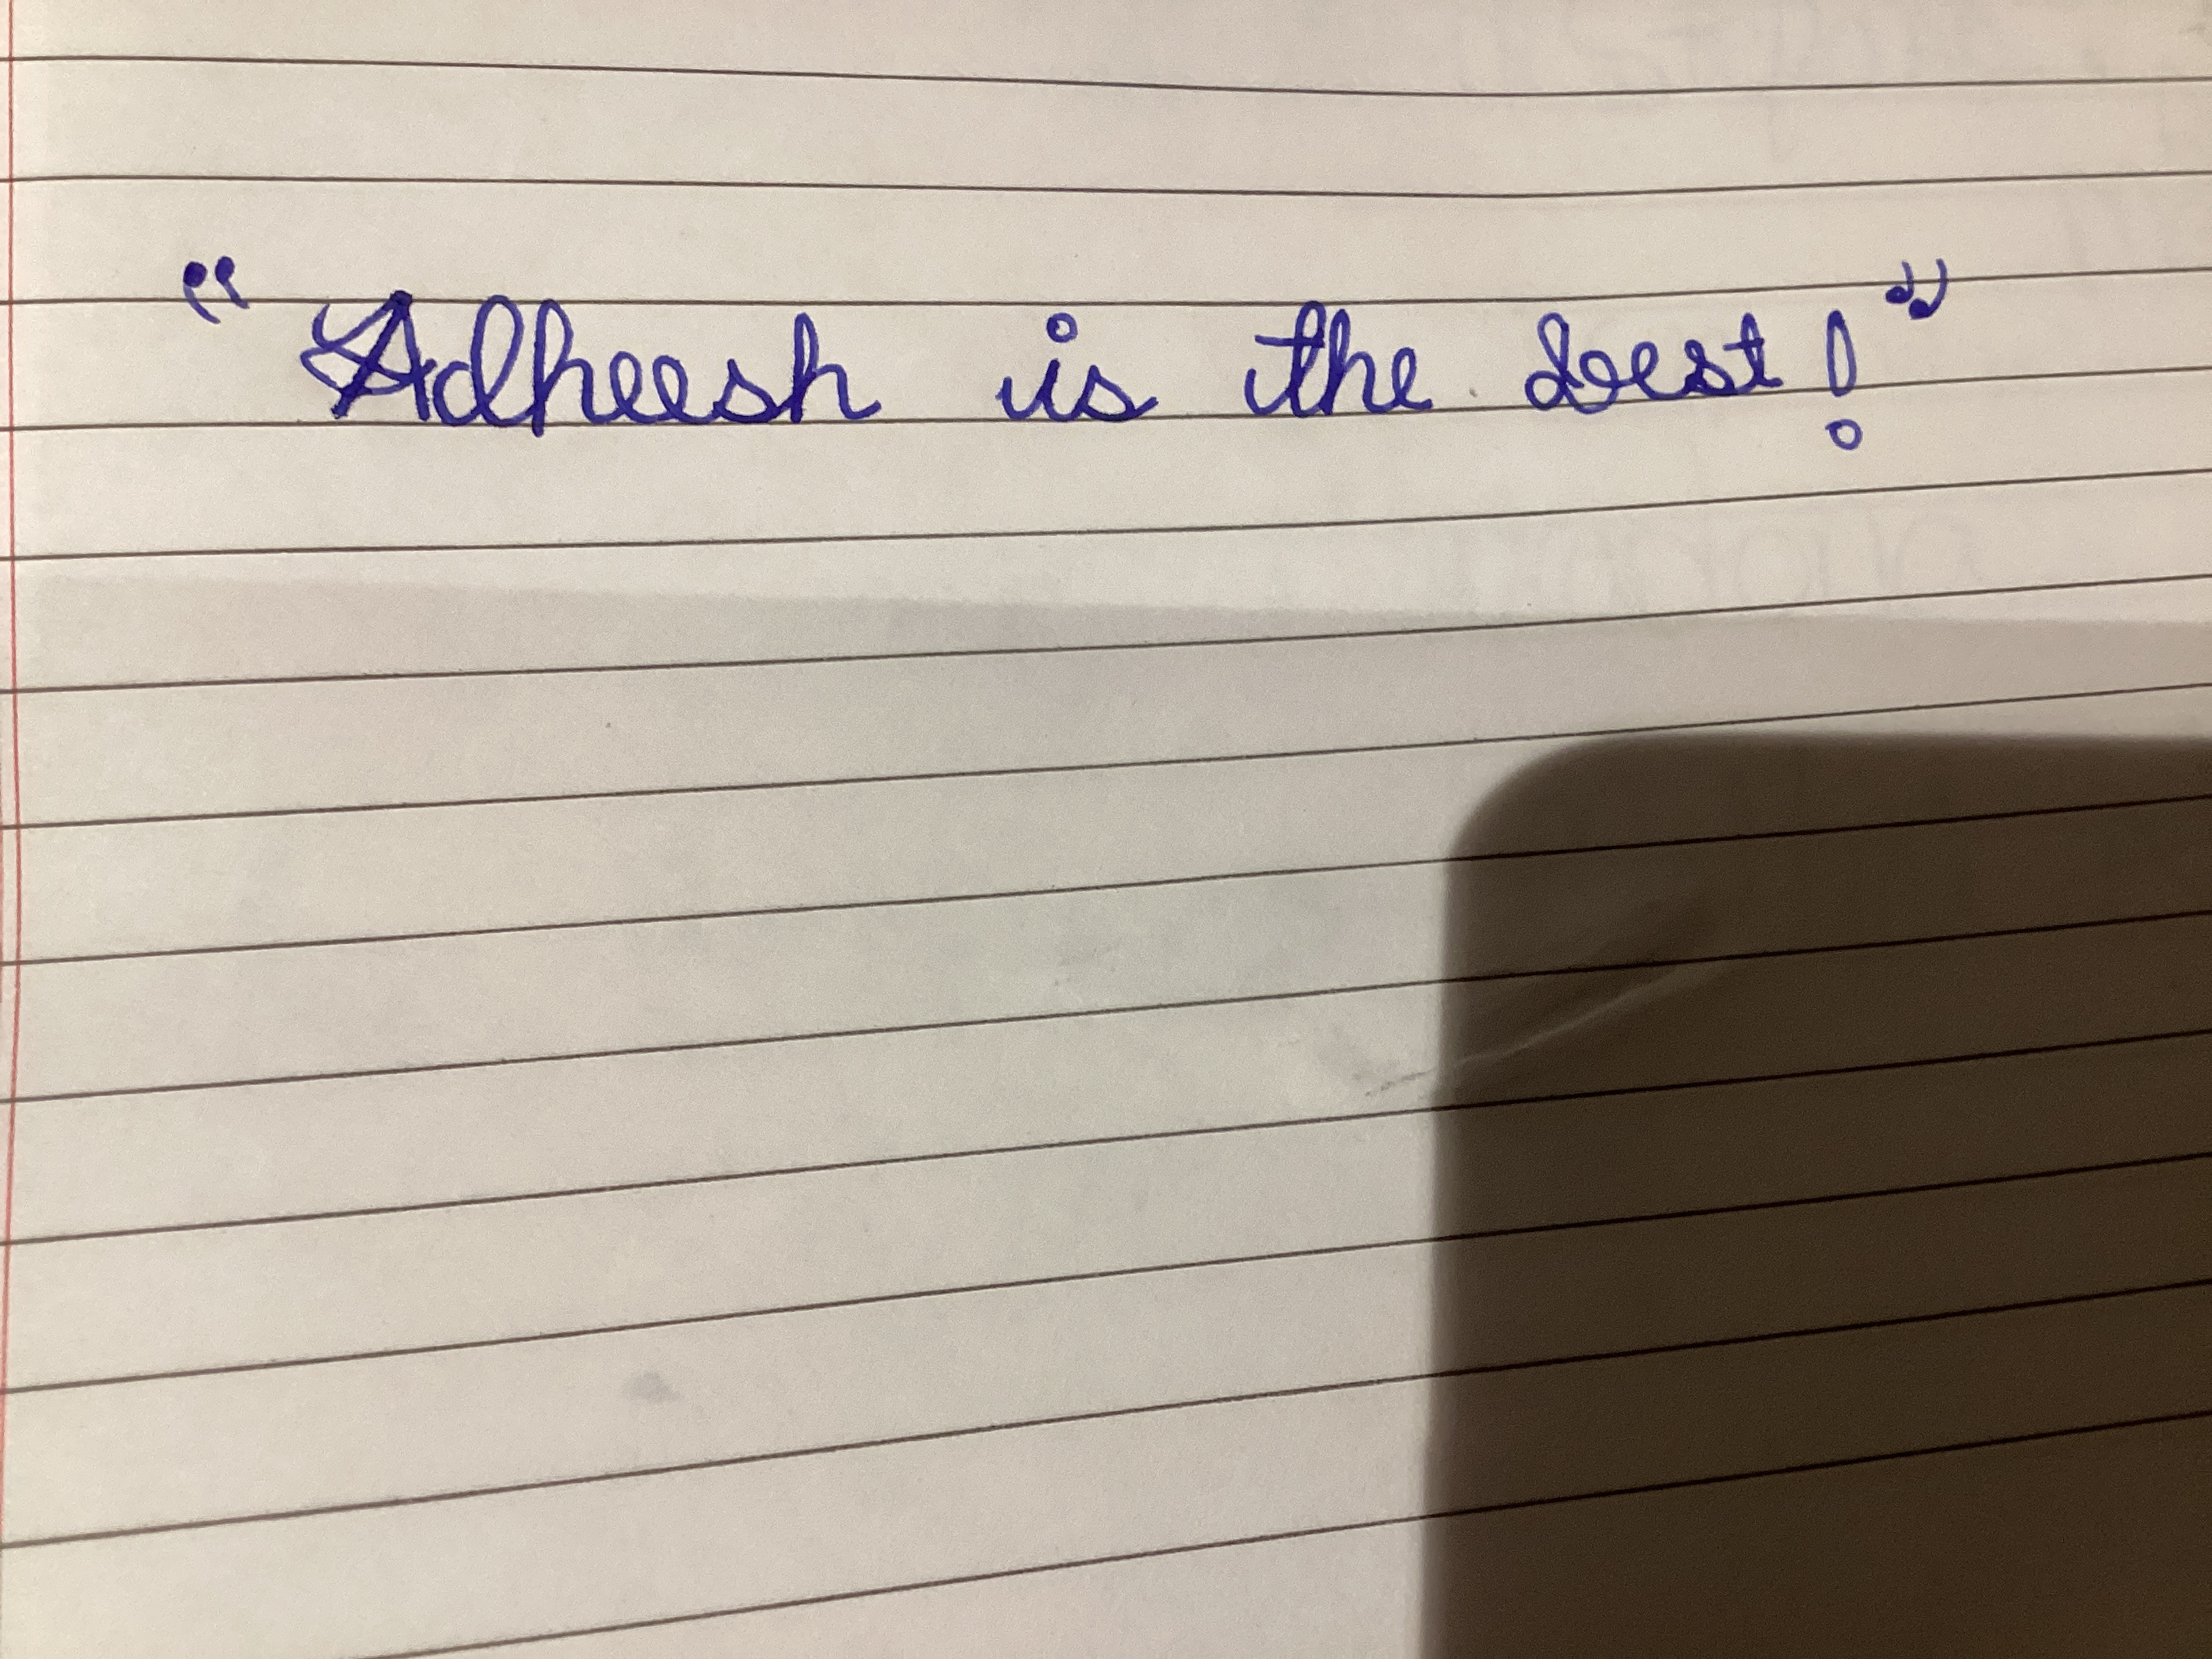 "Adheesh is the best!"